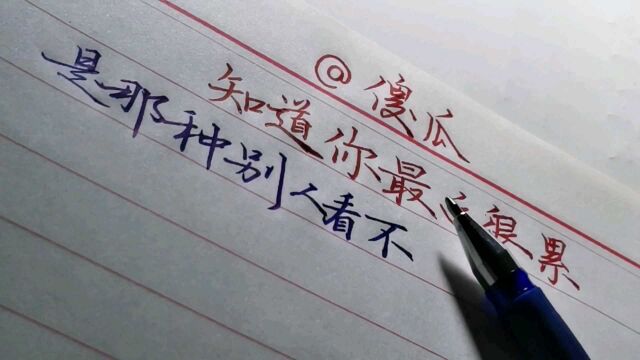 @傻瓜
知道你最近很累
是那种别人看不